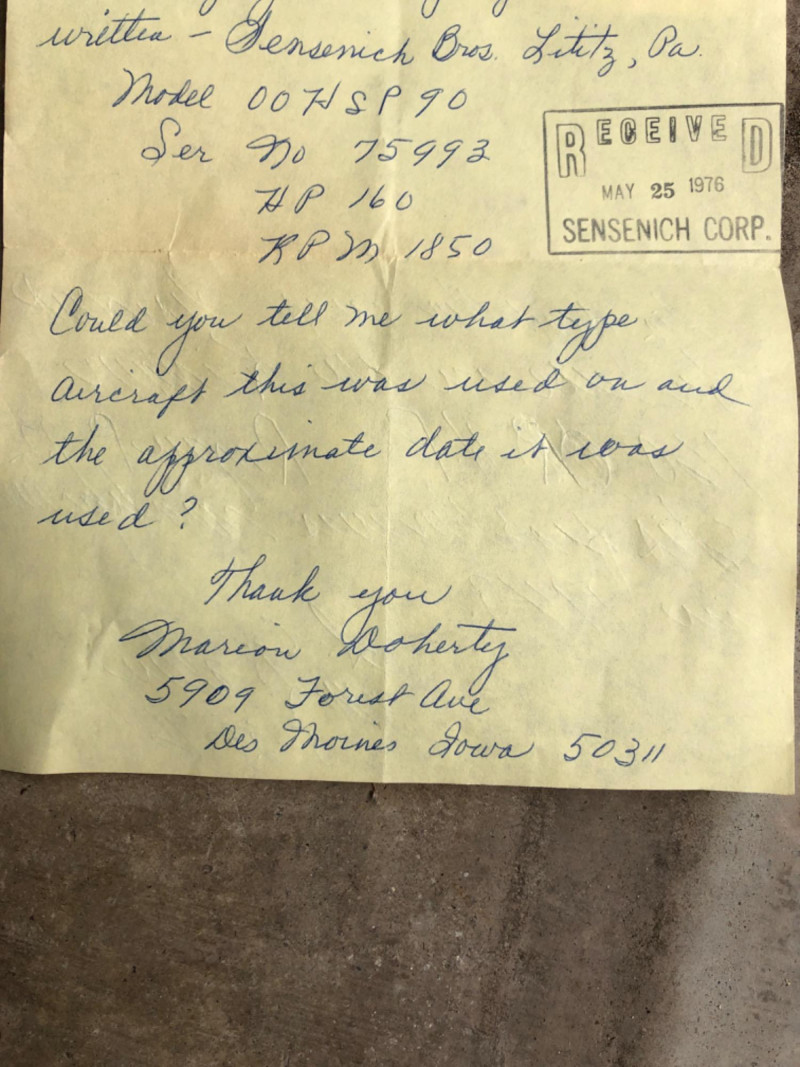 written - Sensenich Bros. Lititz, Pa.
Model 00 HSP 90
Ser No 75993
HP 160
RPM 1850
RECEIVED
MAY 25 1976
SENSENICH CORP.
Could you tell me what type
aircraft this was used on and
the approximate date it was
used?
Thank you
Marion Doherty
5909 Forest Ave
Des Moines Iowa 50311